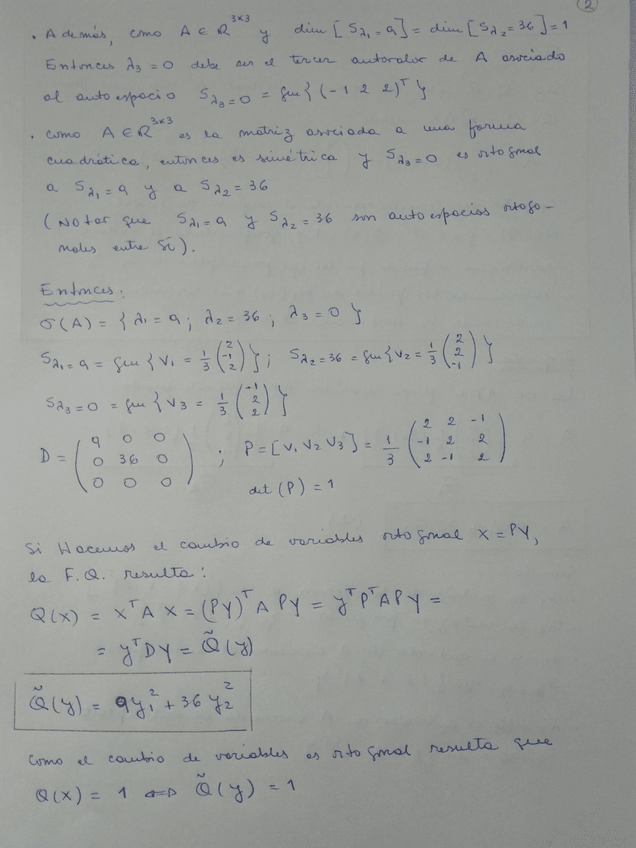 2
. Además, como A ∈ R^{3×3} y dim [S_{λ1} = 9] = dim [S_{λ2} = 36] = 1
Entonces λ3 = 0 debe ser el tercer autovalor de A asociado
al autoespacio S_{λ3} = 0 = gen { (-1 2 2)^T }
. Como A ∈ R^{3×3} es la matriz asociada a una forma
cuadrática, entonces es simétrica y S_{λ3} = 0 es ortogonal
a S_{λ1} = 9 y a S_{λ2} = 36
(Notar que S_{λ1} = 9 y S_{λ2} = 36 son autoespacios ortogo-
nales entre sí).
Entonces:
σ(A) = { λ1 = 9 ; λ2 = 36 ; λ3 = 0 }
S_{λ1} = 9 = gen { V1 = 1/3 (2 -1 2) } ; S_{λ2} = 36 = gen { V2 = 1/3 (2 2 -1) }
S_{λ3} = 0 = gen { V3 = 1/3 (-1 2 2) }
D = (9 0 0
0 36 0
0 0 0) ; P = [V1 V2 V3] = 1/3 (2 2 -1
-1 2 2
2 -1 2)
det (P) = 1
Si Hacemos el cambio de variables ortogonal X = PY,
la F.Q. resulta:
Q(X) = X^T A X = (PY)^T A PY = Y^T P^T A P Y =
= Y^T D Y = Q̃(y)
Q̃(y) = 9 y_1^2 + 36 y_2^2
Como el cambio de variables es ortogonal resulta que
Q(X) = 1 ⇔ Q̃(y) = 1